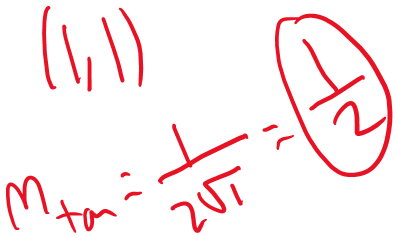 (1,1)
m_tan = 1/(2√1) = 1/2